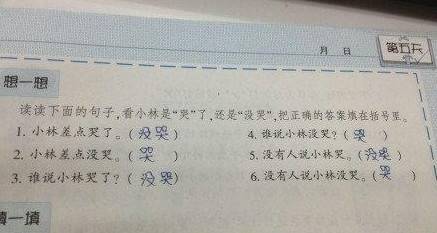 月 日 第五天
想一想
读读下面的句子,看小林是“哭”了,还是“没哭”,把正确的答案填在括号里。
1. 小林差点哭了。(没哭)
4. 谁说小林没哭?(哭)
2. 小林差点没哭。(哭)
5. 没有人说小林哭。(没哭)
3. 谁说小林哭了?(没哭)
6. 没有人说小林没哭。(哭)
填一填